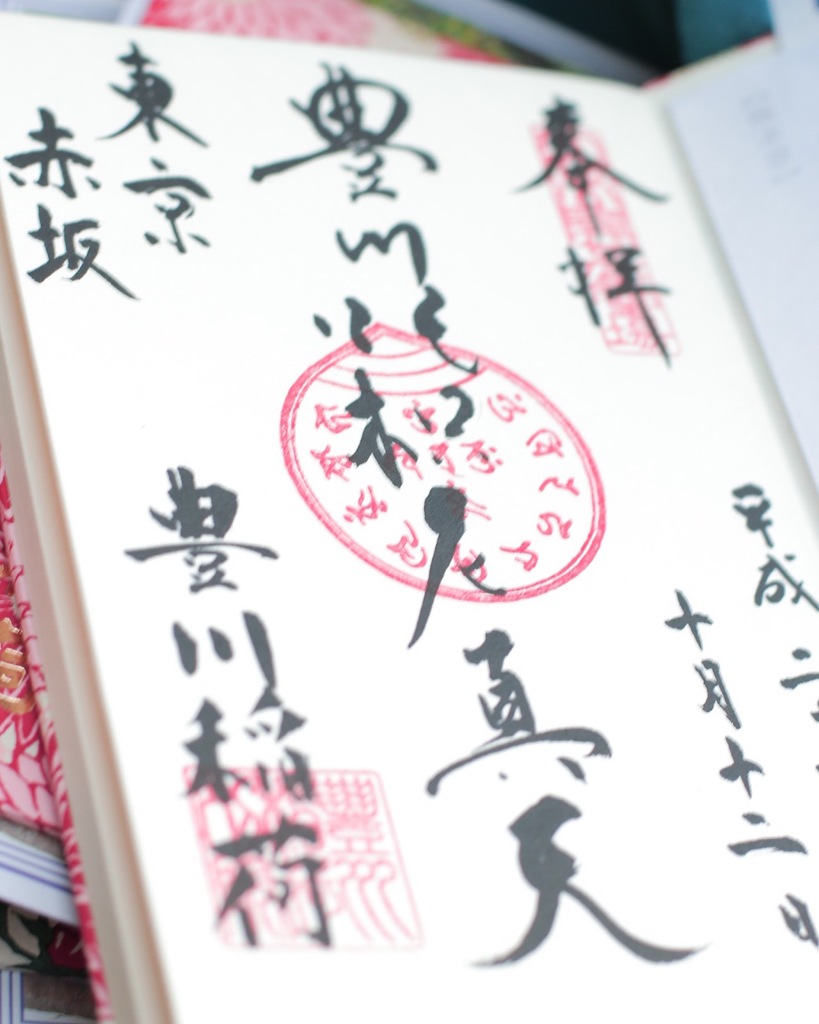 奉拝
平成二
十月十二日
豊川吒枳尼真天
東京
赤坂
豊川稲荷